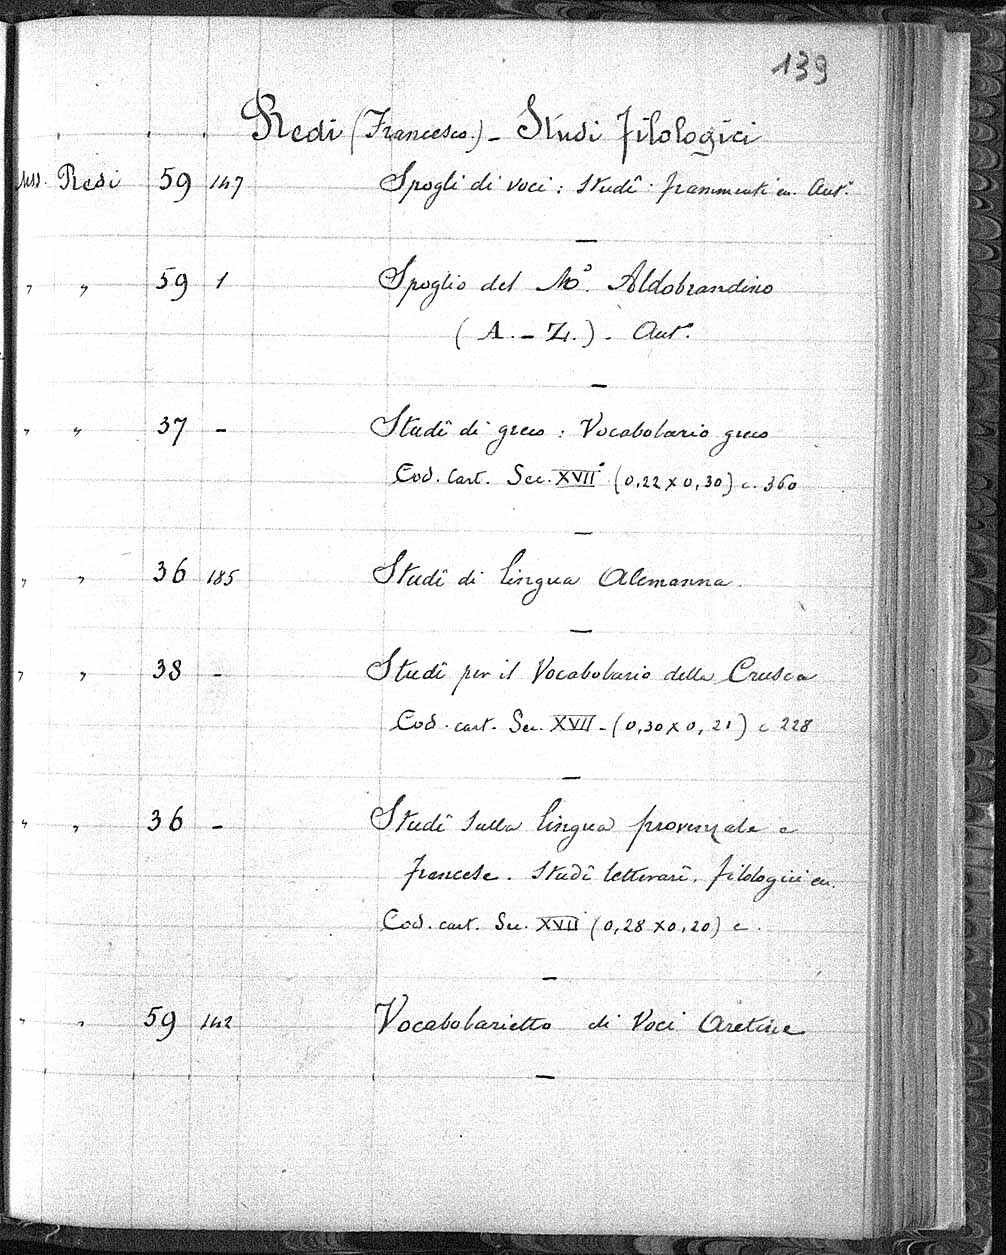 139
Redi (Francesco.) - Studi filologici
Mss. Redi 59 147 Spogli di voci: Studî: frammenti ec. Aut.º
" " 59 1 Spoglio del Mº. Aldobrandino
(A. - Z.) - Aut.º
" " 37 - Studî di greco: Vocabolario greco
Cod. Cart. Sec. XVIIº (0,22 x 0,30) c. 360
" " 36 185 Studî di lingua Alemanna.
" " 38 - Studî per il Vocabolario della Crusca
Cod. cart. Sec. XVII - (0,30 x 0,21) c 228
" " 36 - Studî sulla lingua provenzale e
francese. Studî letterarî, filologici ec.
Cod. cart. Sec. XVII (0,28 x 0,20) c.
" " 59 142 Vocabolarietto di Voci Aretine